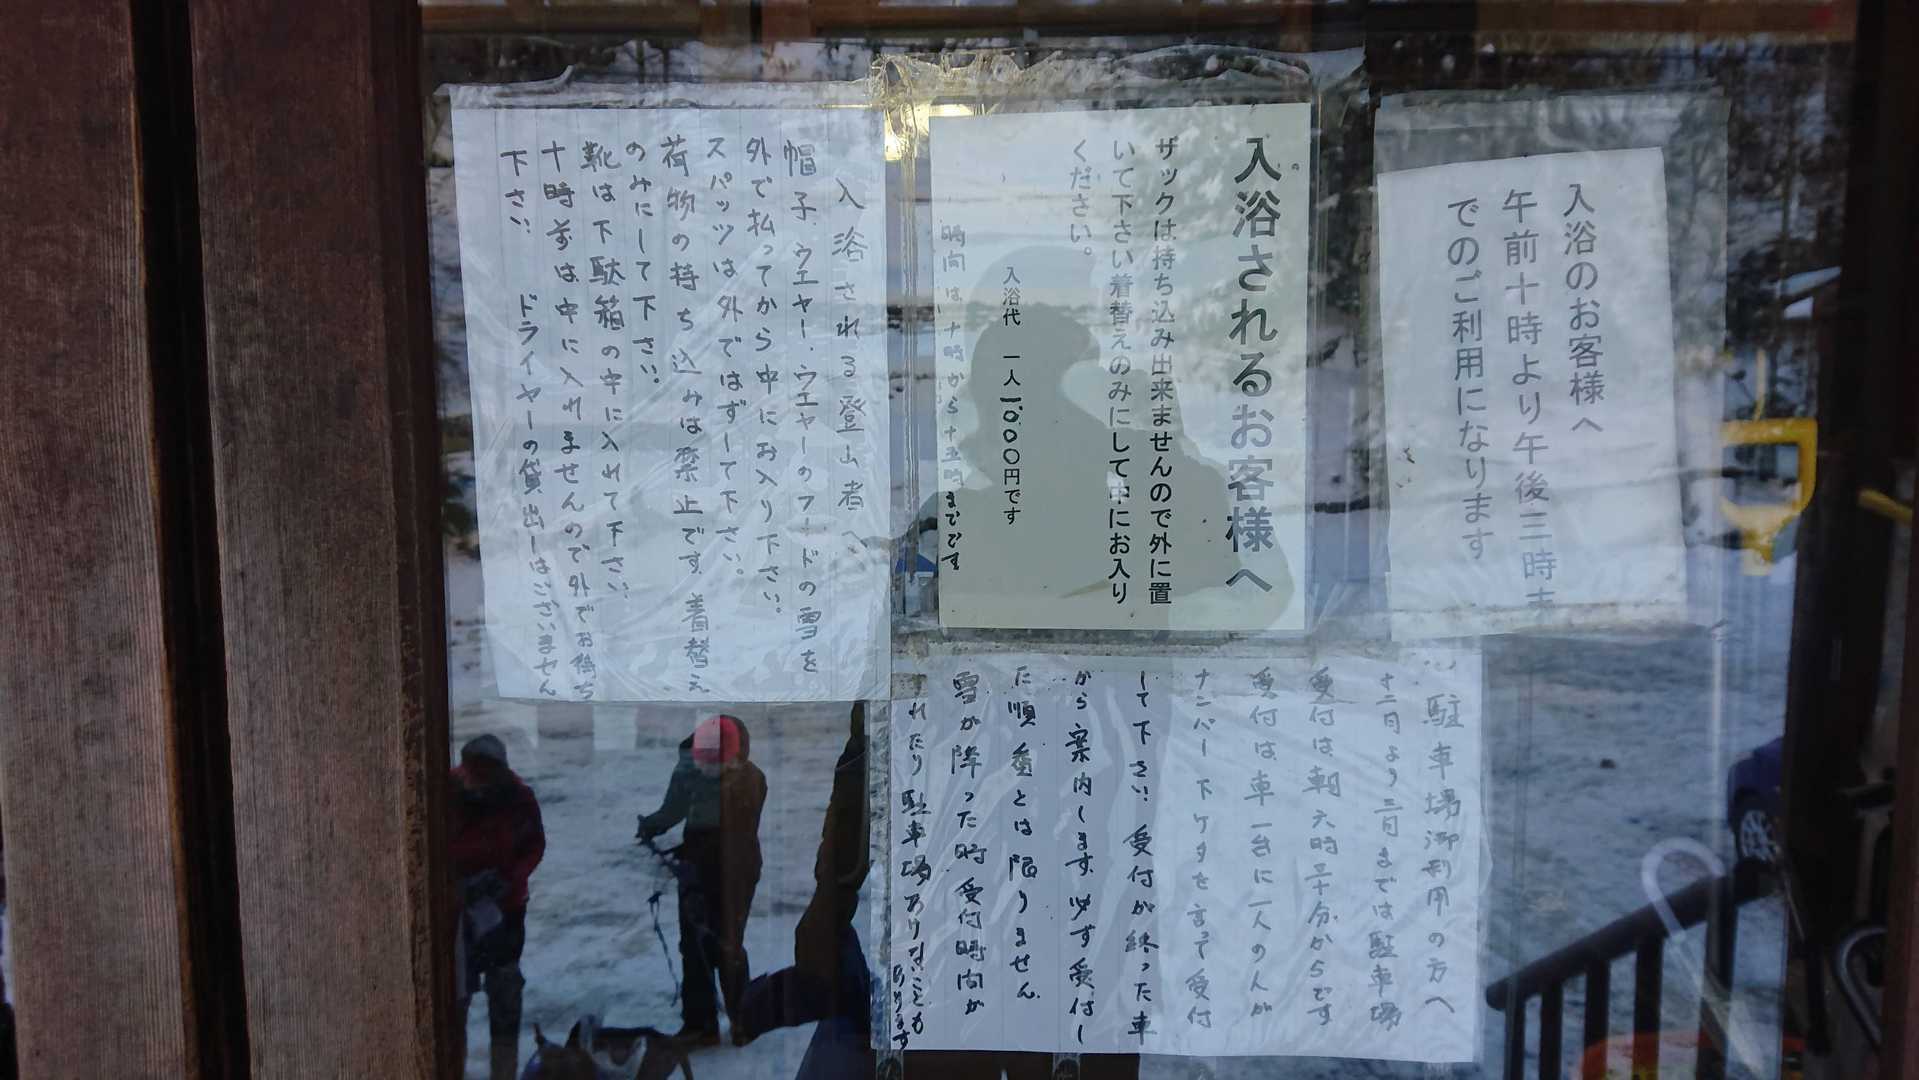 入浴のお客様へ
午前十時より午後三時ま
でのご利用になります
入浴されるお客様へ
ザックは持ち込み出来ませんので外に置
いて下さい着替えのみにして中にお入り
ください。
入浴代 一人一、〇〇〇円です
時間は十時から十五時までです
入浴される登山者へ
帽子、ウエヤー、ウエヤーのフードの雪を
外で払ってから中にお入り下さい。
スパッツは外ではずして下さい。
荷物の持ち込みは禁止です、着替え
のみにして下さい。
靴は下駄箱の中に入れて下さい、
十時前は中に入れませんので外でお待ち
下さい ドライヤーの貸出しはございません
駐車場御利用の方へ
十二月より三月までは駐車場
受付は朝六時三十分からです
受付は車一台に一人の人が
ナンバー下ケタを言って受付
して下さい、受付が終った車
から案内します、必ず受付し
た順番とは限りません、
雪が降った時受付時間が
れたり駐車場あけないことも
あります